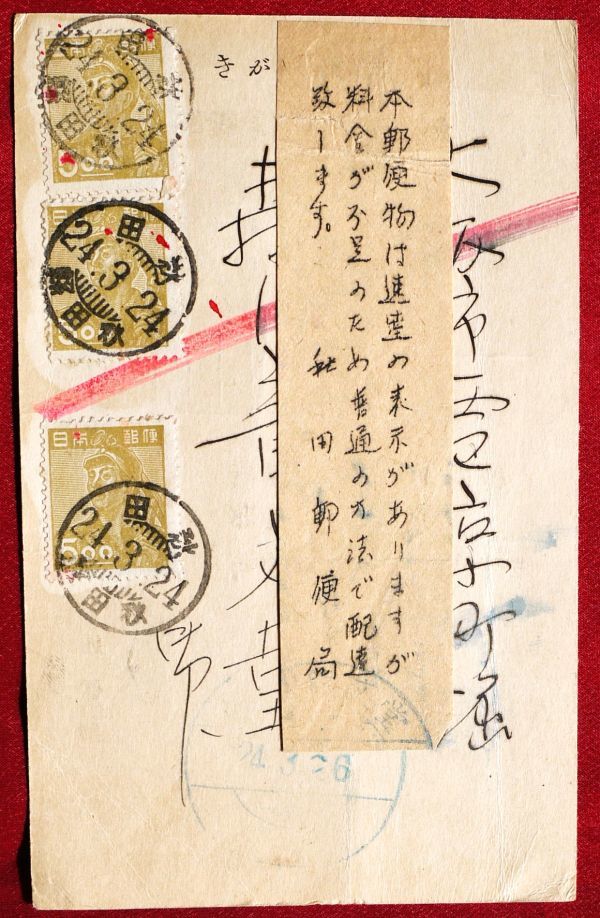 きが
本郵便物は速達の表示がありますが
料金が不足のため普通の方法で配達
致します。
秋田郵便局
大阪市西区京町堀
日本郵便
5.00
秋田
24.3.24
秋田
日本郵便
5.00
秋田
24.3.24
秋田
日本郵便
5.00
秋田
24.3.24
秋田
24.3.26